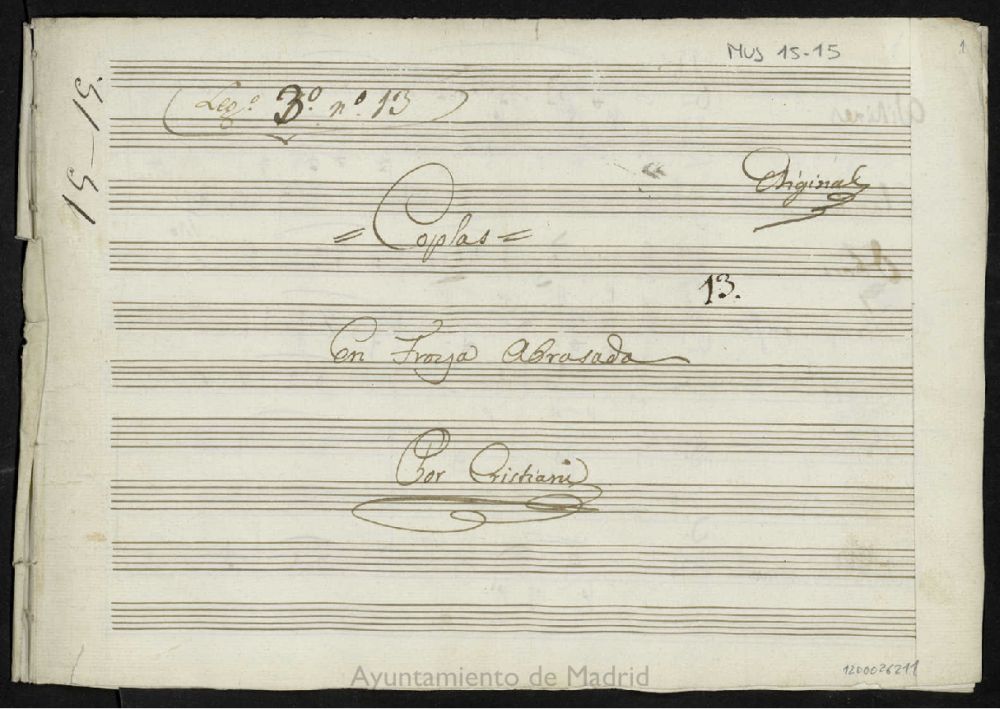 Mus 15-15
1
15-15
(Leg.º 3º nº 13)
Original
=Coplas=
13.
En Troya Abrasada
Por Cristiani
Ayuntamiento de Madrid
1200026211